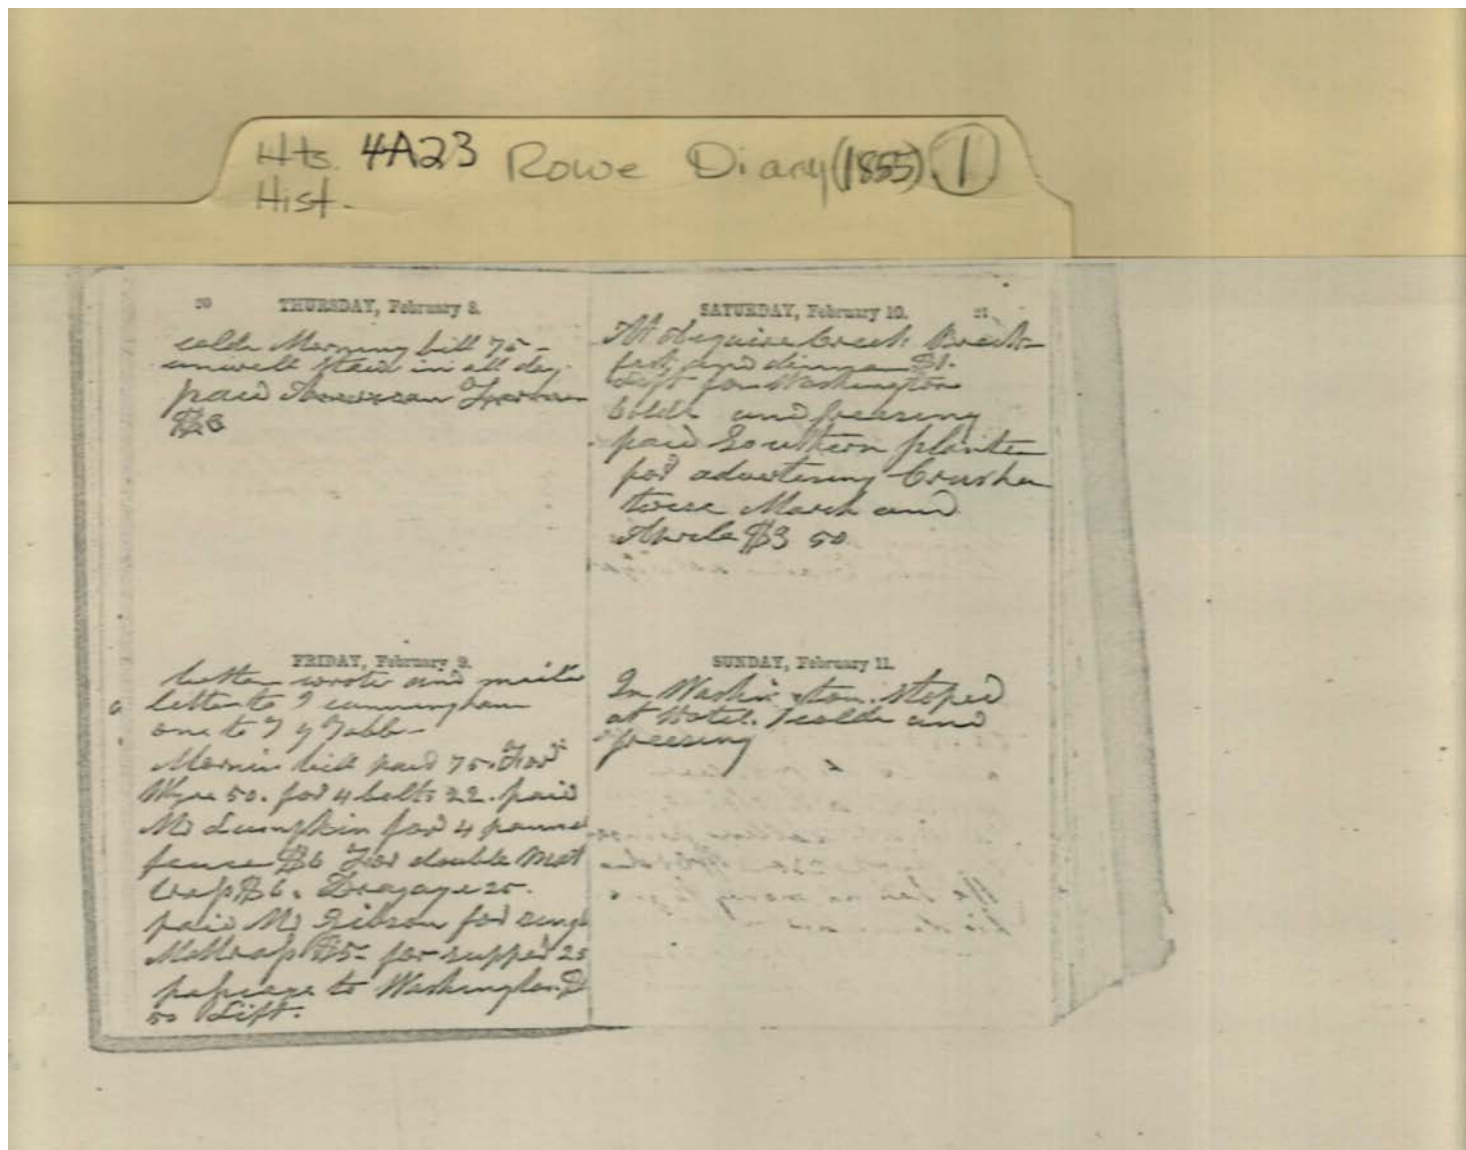 Hts. 4A23 Rowe Diary (1855) 1
Hist.
20 THURSDAY, February 8.
colde Morning bill 75 -
unwell Staid in all day
paid American Farmer
$6
FRIDAY, February 9.
better wrote and maild
letter to J cunningham
one to
Mornin bill paid 75. For
Wyre 50. for 4 bolts 22. paid
Mr Lumpkin for 4
fence $6 For double Mol
trap $6. Drayage 25.
paid Mr Gibson for singl
Moltrap $5- for supper 25
passage to Washington $
50 Lift.
SATURDAY, February 10. 21
At Creek Breck
fast and dinner $1.
Lift for Washington
Colde and freesing
paid Southern planter
for advertising Crusher
twice March and
Aprile $3 50
SUNDAY, February 11.
In Washington. stoped
at Hotel. colde and
freesing